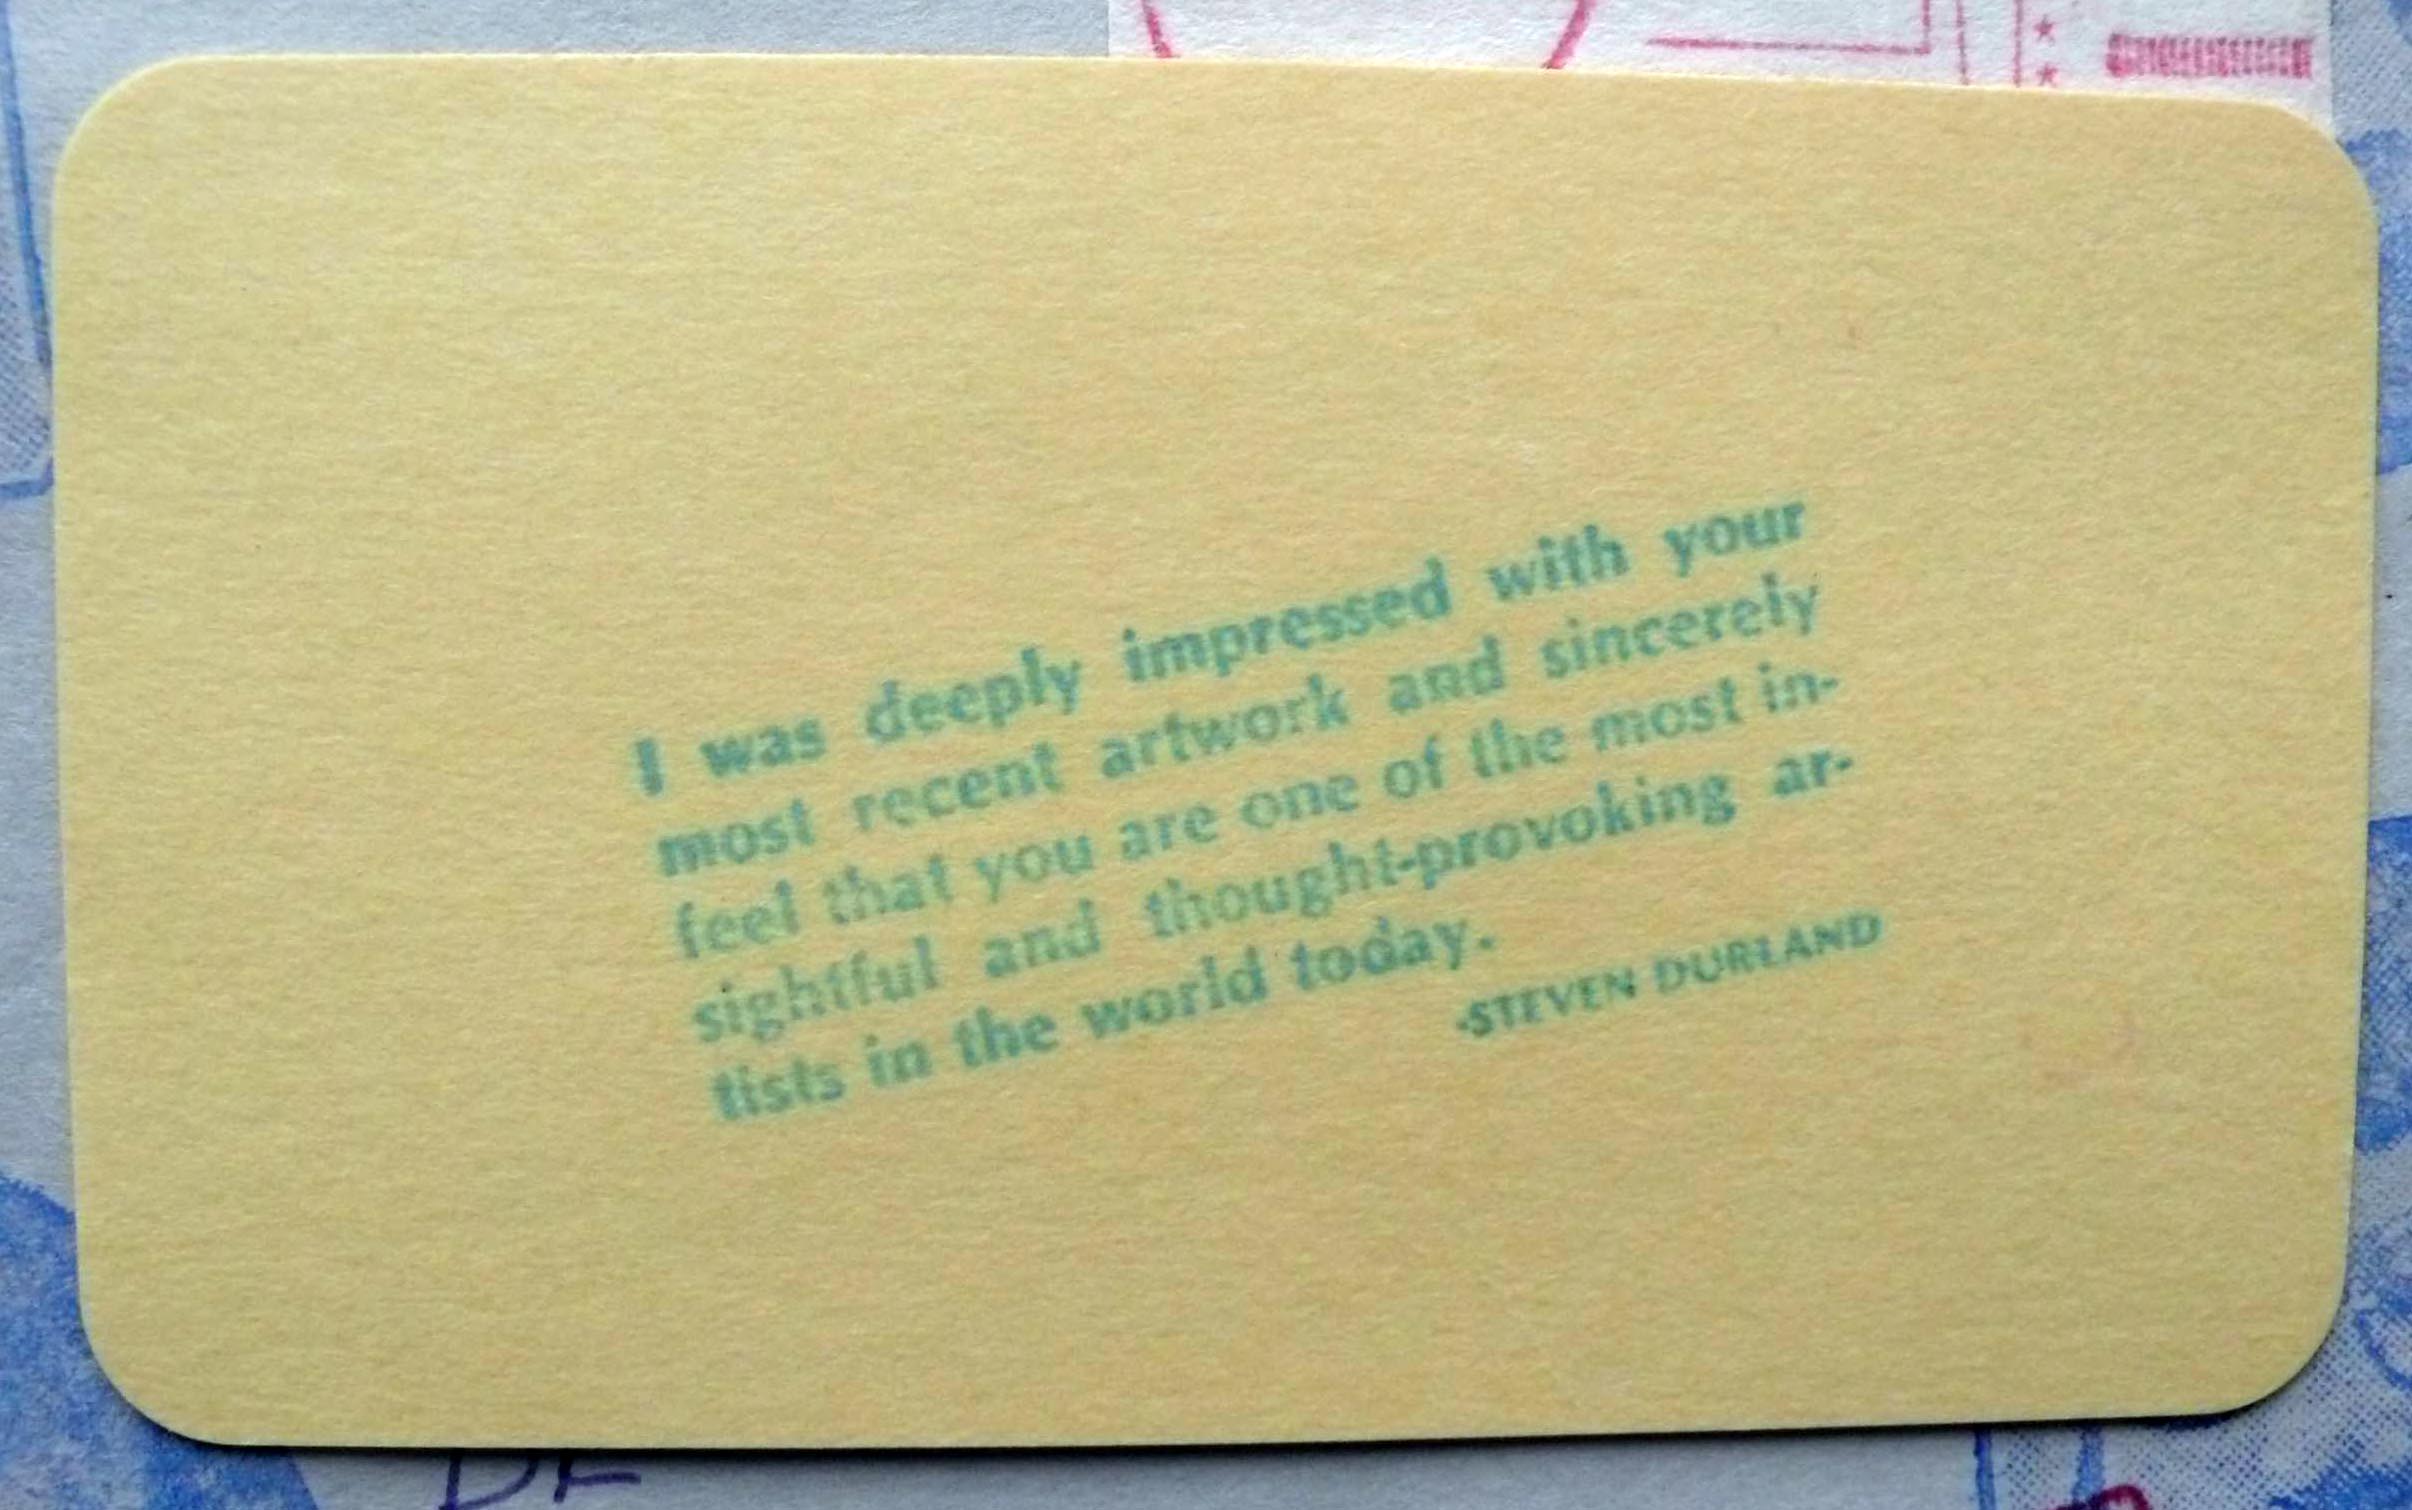 I was deeply impressed with your
most recent artwork and sincerely
feel that you are one of the most in-
sightful and thought-provoking ar-
tists in the world today.
-STEVEN DURLAND